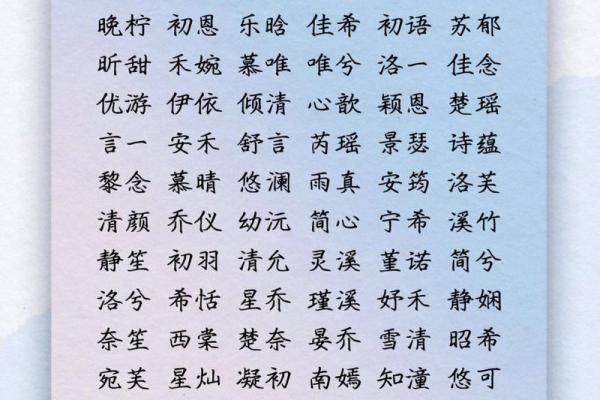 晚柠 初恩 乐晗 佳希 初语 苏郁
昕甜 禾婉 慕唯 唯兮 洛一 佳念
优游 伊依 倾清 心歆 颖恩 楚瑶
言一 安禾 舒言 芮瑶 景瑟 诗蕴
黎念 慕晴 悠澜 雨真 安筠 洛芙
清颜 乔仪 幼沅 简心 宁希 溪竹
静笙 初羽 清允 灵溪 堇诺 简兮
洛兮 希恬 星乔 瑾溪 妤禾 静娴
奈笙 西棠 楚奈 晏乔 雪清 昭希
宛芙 星灿 凝初 南嫣 知潼 悠可